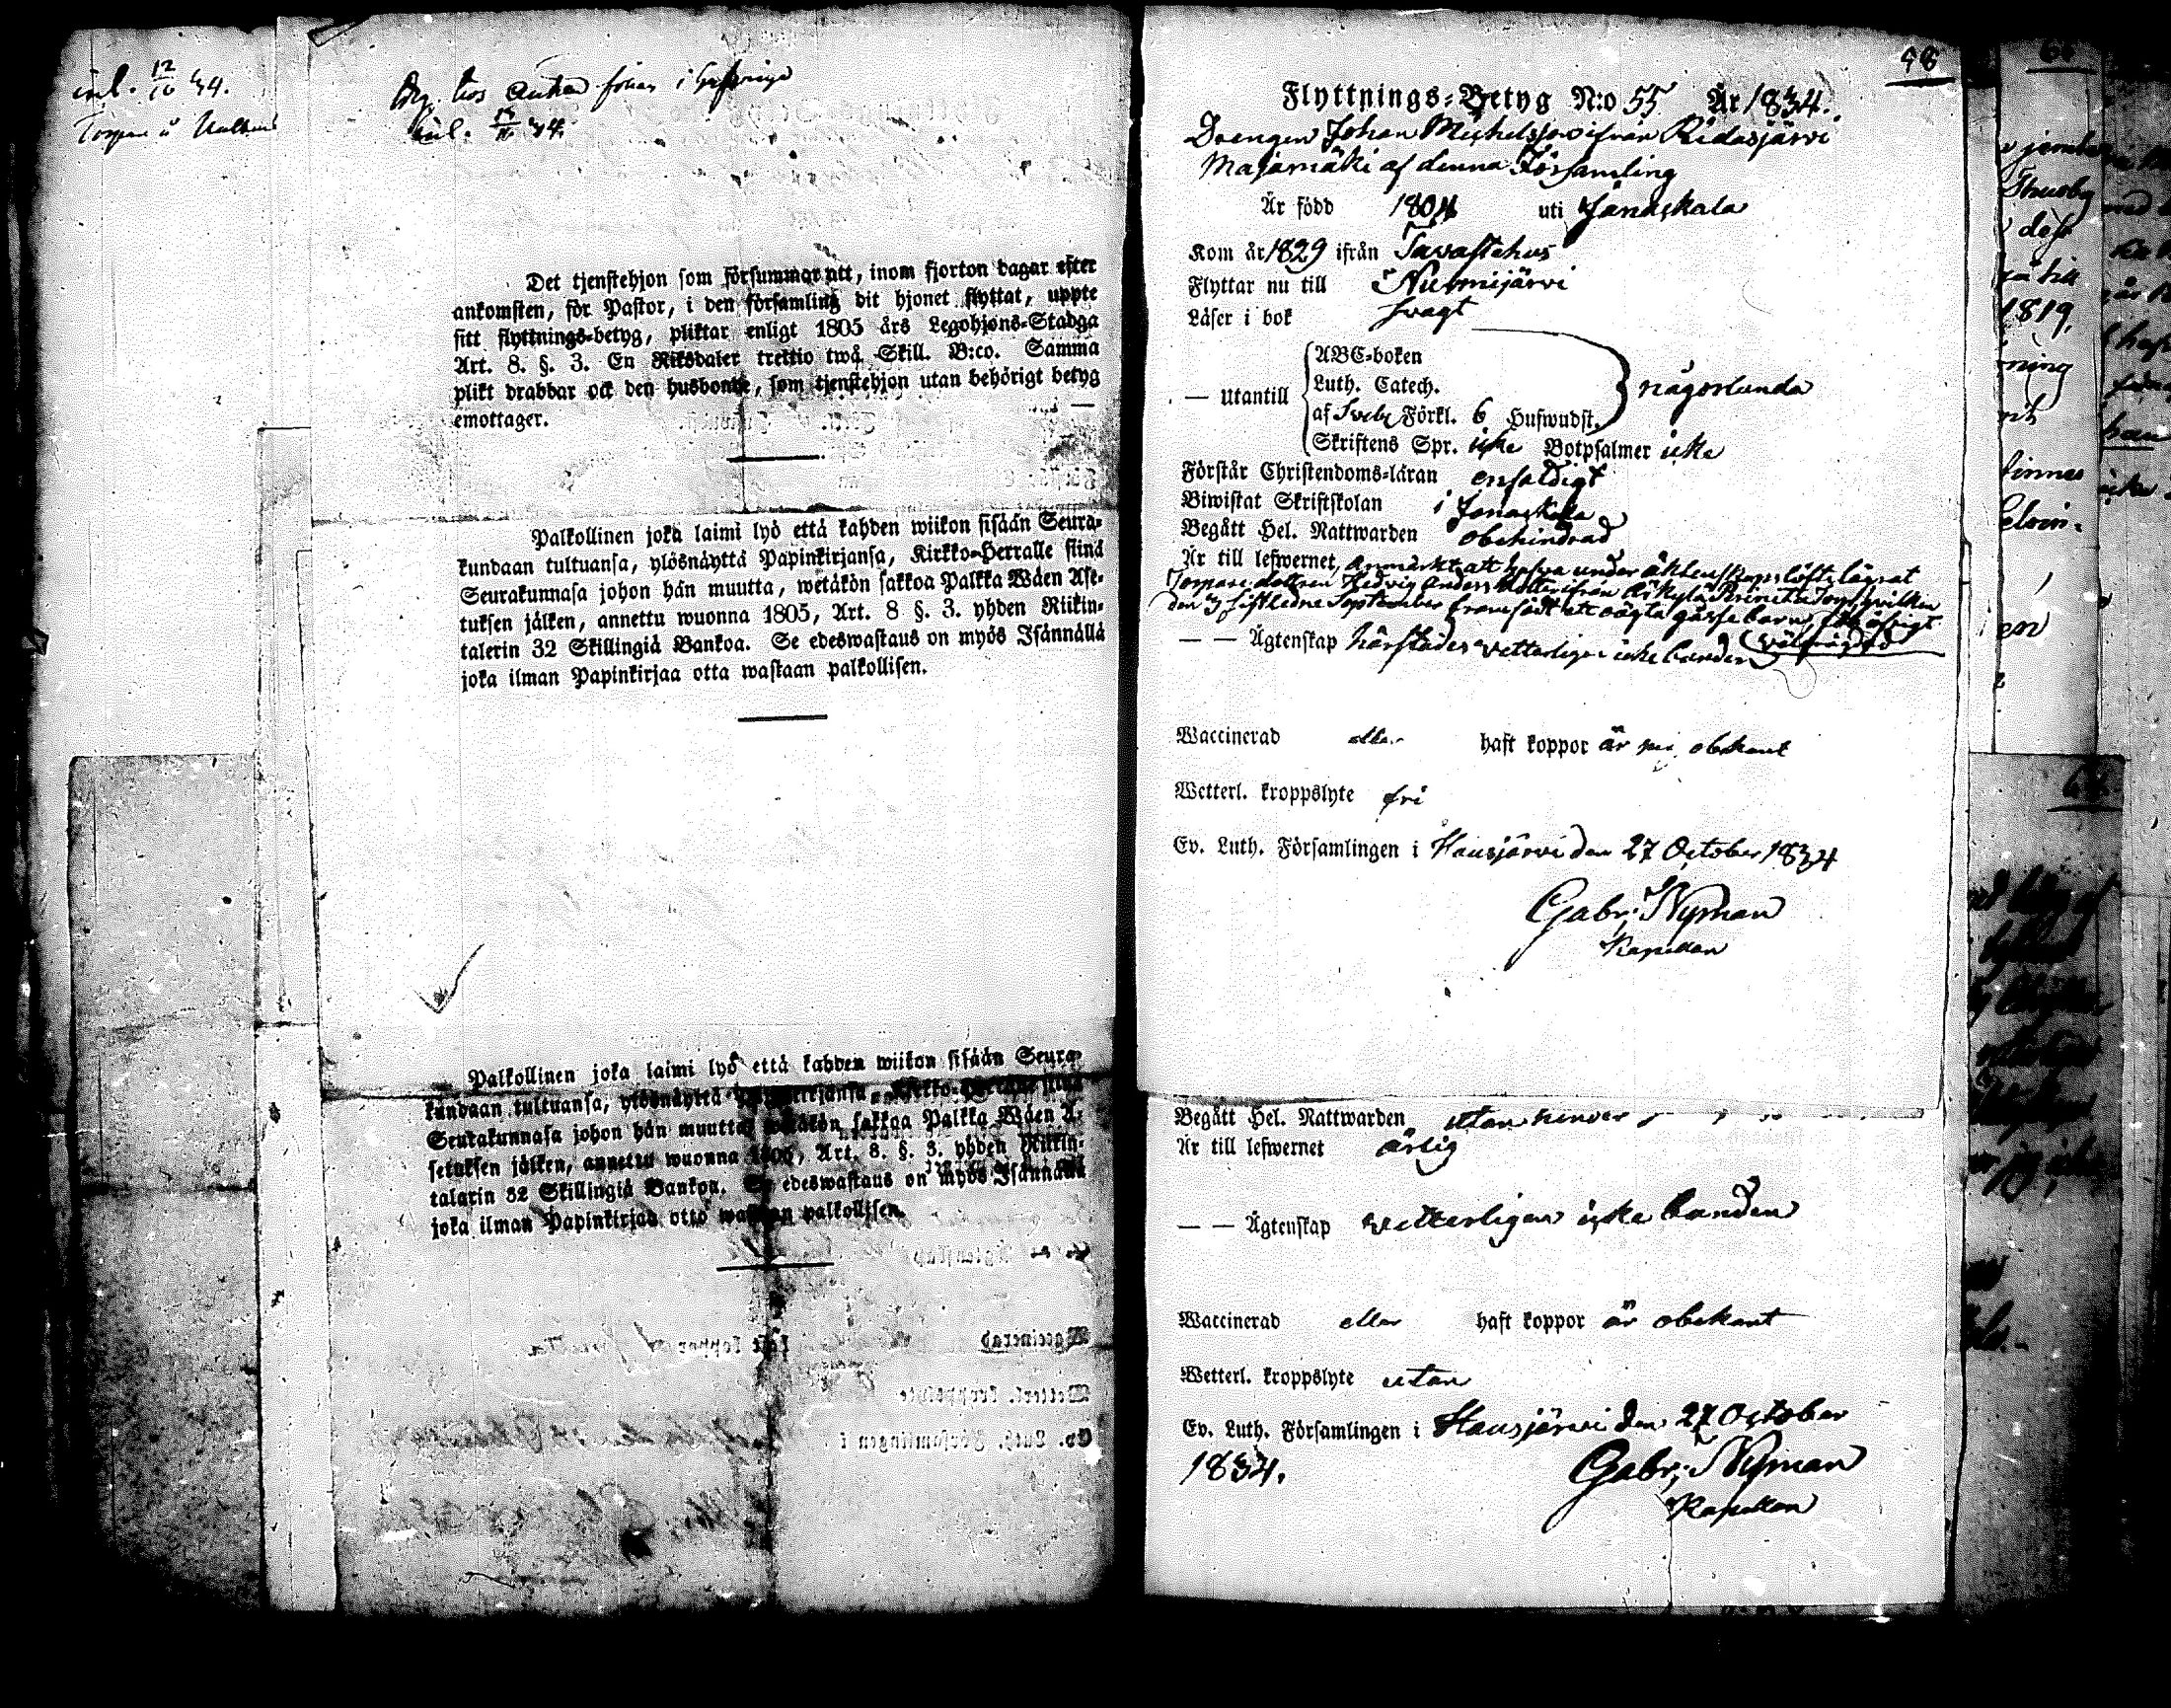 inl. 12/10 34.
Torpare
hos
inl. 34.
Det tjenstehjon som försummar att, inom fjorton dagar efter
ankomsten, för Pastor, i den församling dit hjonet flyttat, uppte
sitt flyttnings-betyg, pliktar enligt 1805 års Legohjons-Stadga
Art. 8. §. 3. En Riksdaler trettio twå Skill. B:co. Samma
plikt drabbar ock den husbonde, som tjenstehjon utan behörigt betyg
emottager.
Palkollinen joka laimi lyö että kahden wiikon sisään Seura-
kundaan tultuansa, ylösnäyttä Papinkirjansa, Kirkko-Herralle siinä
Seurakunnasa johon hän muutta, wetäkön sakkoa Palkka Wäen Ase-
tuksen jälken, annettu wuonna 1805, Art. 8 §. 3. yhden Riikin-
talerin 32 Skillingiä Bankoa. Se edeswastaus on myös Isännällä
joka ilman Papinkirjaa otta wastaan palkollisen.
Palkollinen joka laimi lyö että kahden wiikon sisään Seura-
kundaan tultuansa, ylösnäyttä
Seurakunnasa johon hän muutta, wetäkön sakkoa Palkka Wäen A-
setuksen jälken, annettu wuonna 1805, Art. 8. §. 3. yhden Riikin-
talarin 32 Skillingiä Bankoa. Se edeswastaus on myös Isännällä
joka ilman Papinkirjaa otto wastaan palkollisen.
58
Flyttnings-Betyg N:o 55 År 1834.
Drengen Johan Michelsson ifrån Ridasjärvi
Majamäki af denna Församling
Är född 1804 uti Janakkala
Kom år 1829 ifrån Tavastehus
Flyttar nu till Nurmijärvi
Läser i bok svagt
— utantill
ABC-boken
Luth. Catech.
af Sveb. Förkl. 6 Hufwudst.
någorlunda
Skriftens Spr. icke Botpsalmer icke
Förstår Christendoms-läran enfaldigt
Biwistat Skriftskolan i Janakkala
Begått Hel. Nattwarden obehindrad
Är till lefwernet, anmärkt att hafva under äktenskaps löfte lägrat
Torpare dottren Hedvig Anders dotter ifrån hvilken
den sistledne September fram födt ett oägta gosse barn, för öfrigt
välfrägdad
— — Ägtenskap härstädes vetterligen icke bunden
Waccinerad eller haft koppor är obekant
Wetterl. kroppslyte fri
Ev. Luth. Församlingen i Hausjärvi den 27 October 1834
Gabr. Nyman
Kapellan
Begått Hel. Nattwarden utan hinder
Är till lefwernet ärlig
— — Ägtenskap vetterligen icke bunden
Waccinerad eller haft koppor är obekant
Wetterl. kroppslyte utan
Ev. Luth. Församlingen i Hausjärvi den 27 October
1834.
Gabr. Nyman
Kapellan